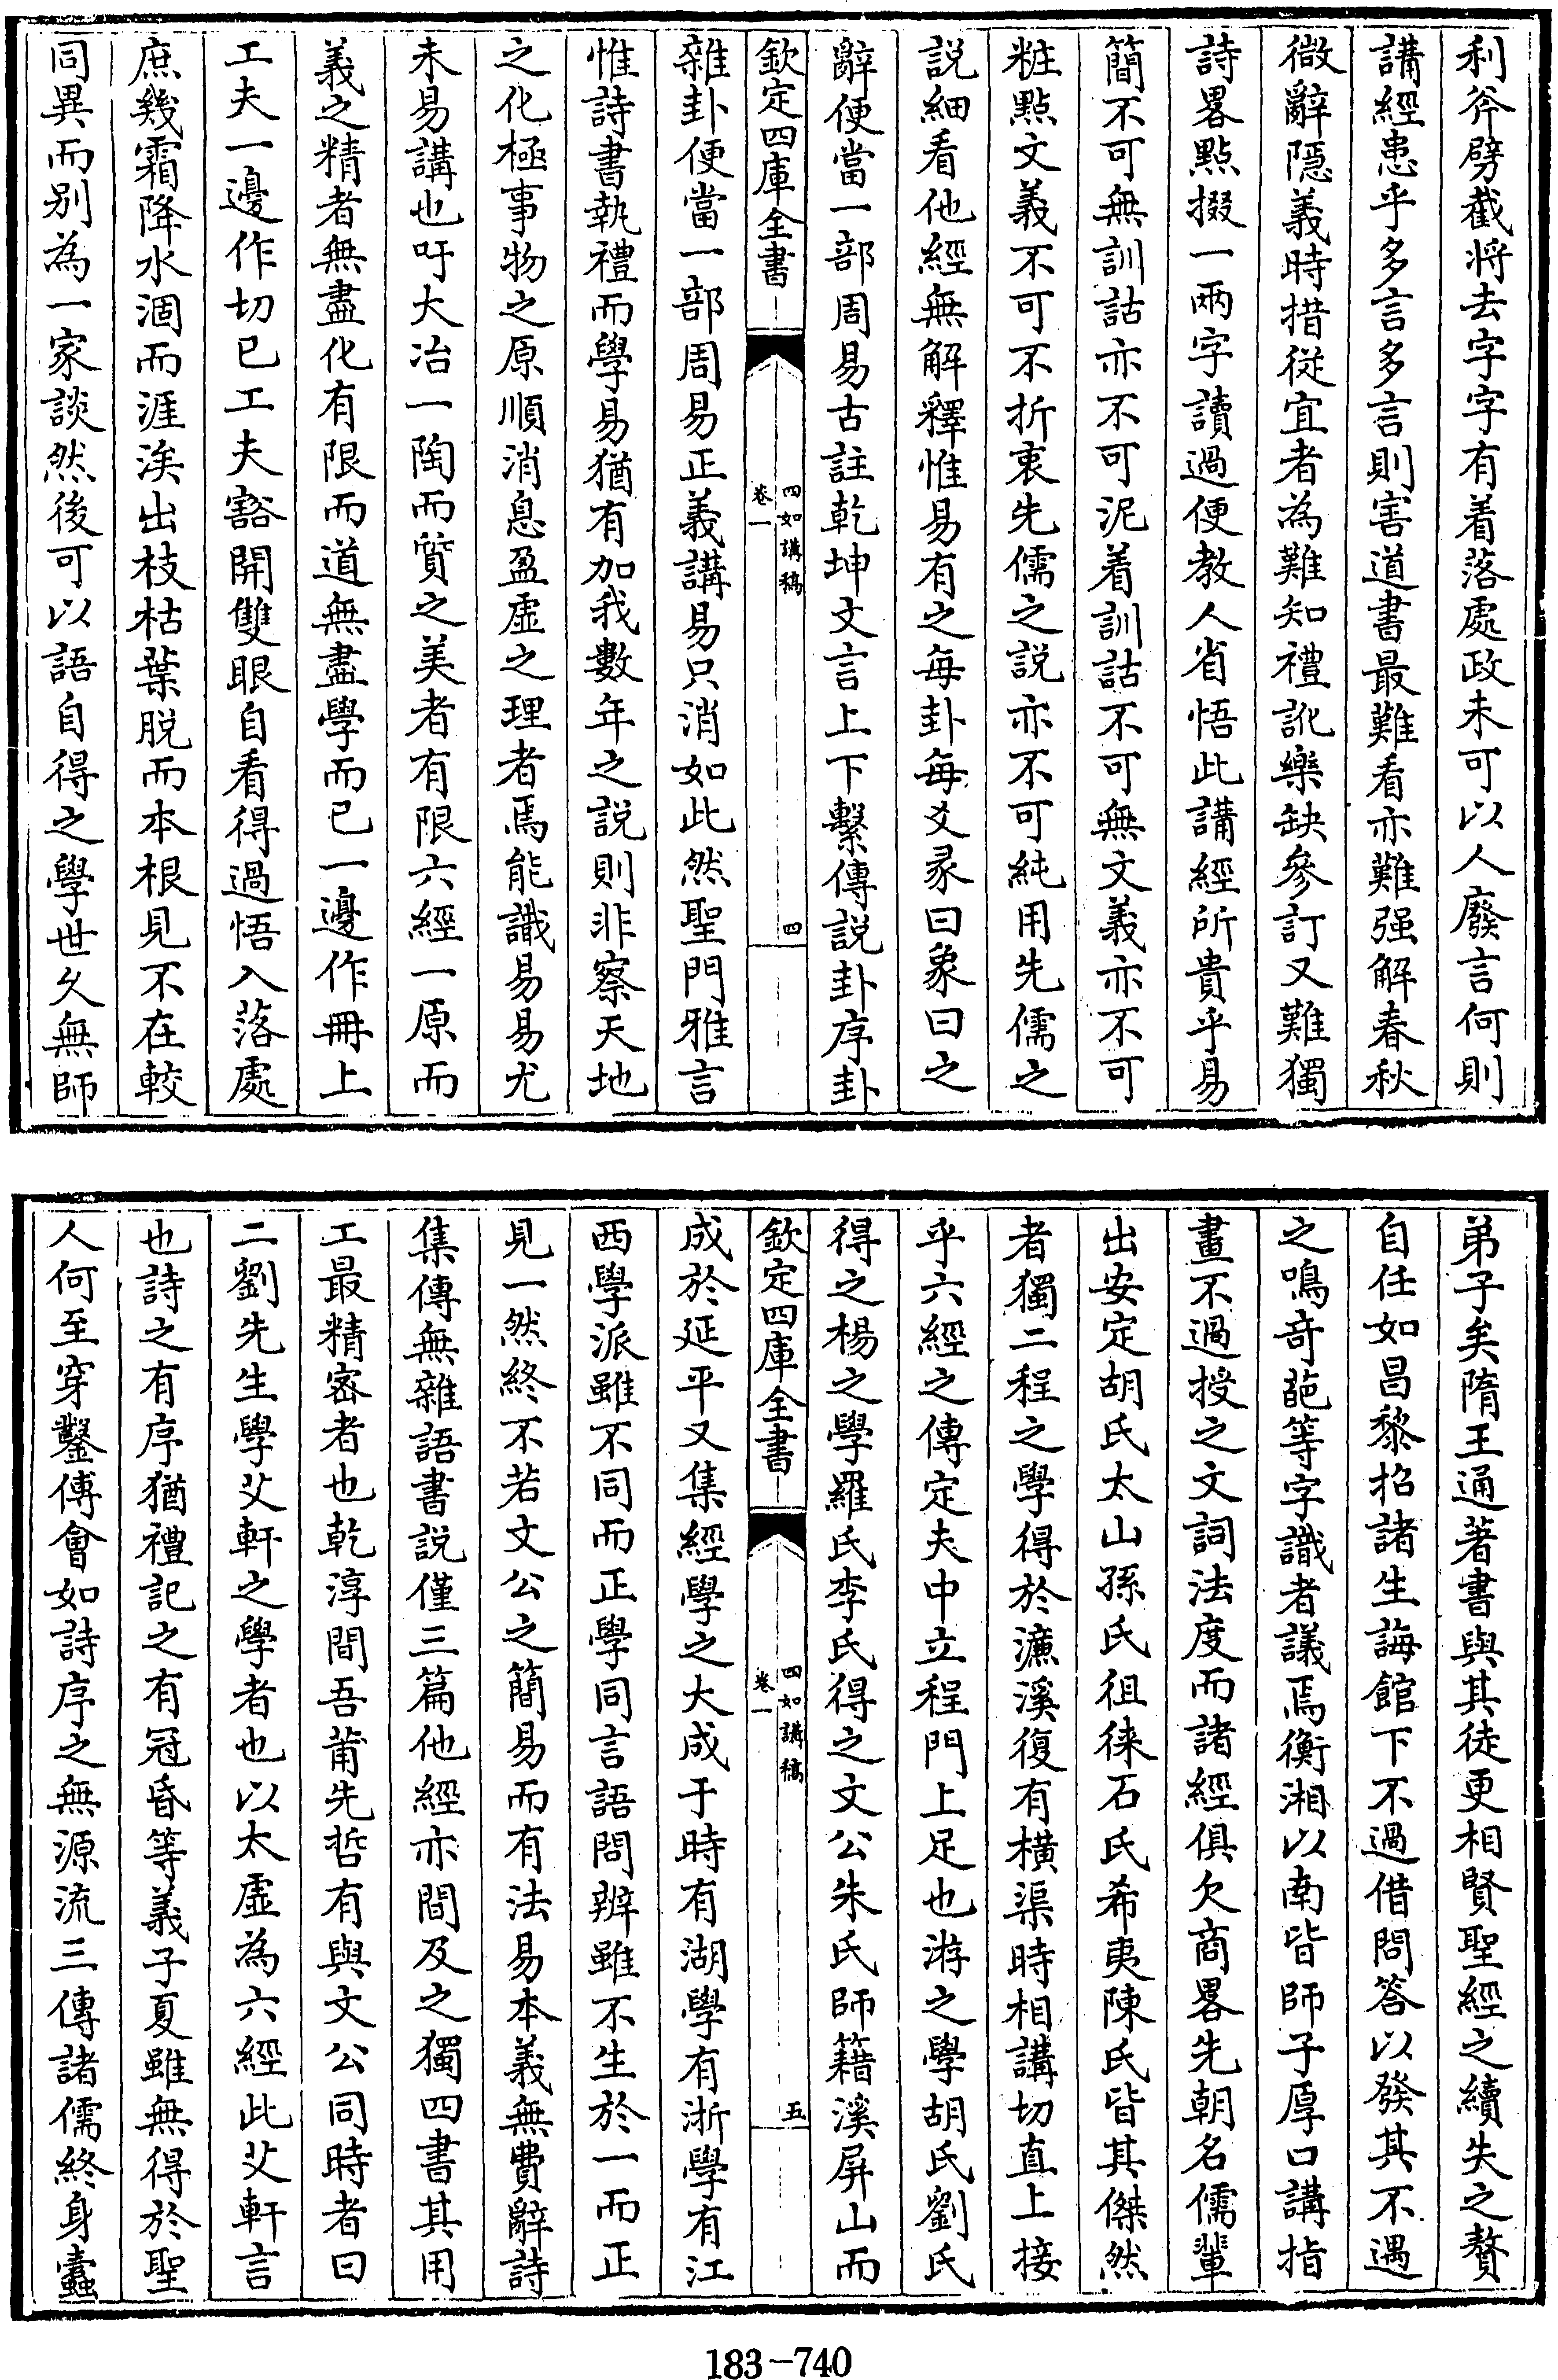 利斧劈截將去字字有着落處政未可以人廢言何則
講經患乎多言多言則害道書最難看亦難强解春秋
微辭隠義時措從宜者為難知禮訛樂缺參訂又難獨
詩畧點掇一兩字讀過便教人省悟此講經所貴乎易
簡不可無訓詁亦不可泥着訓詁不可無文義亦不可
粧點文義不可不折衷先儒之説亦不可純用先儒之
説細看他經無解釋惟易有之每卦每爻彖曰象曰之
辭便當一部周易古註乾坤文言上下繫傳説卦序卦
欽定四庫全書
四如講稿
卷一
四
雜卦便當一部周易正義講易只消如此然聖門雅言
惟詩書執禮而學易猶有加我數年之説則非察天地
之化極事物之原順消息盈虛之理者焉能識易易尤
未易講也吁大冶一陶而質之美者有限六經一原而
義之精者無盡化有限而道無盡學而已一邊作冊上
工夫一邊作切已工夫豁開雙眼自看得過悟入落處
庶幾霜降水涸而涯涘出枝枯葉脱而本根見不在較
同異而别為一家談然後可以語自得之學世乆無師
弟子矣隋王通著書與其徒更相賢聖經之續失之贅
自任如昌黎招諸生誨館下不過借問答以發其不遇
之鳴奇葩等字識者議焉衡湘以南皆師子厚口講指
畫不過授之文詞法度而諸經俱欠商畧先朝名儒輩
出安定胡氏太山孫氏徂徠石氏希夷陳氏皆其傑然
者獨二程之學得於濂溪復有橫渠時相講切直上接
乎六經之傳定夫中立程門上足也游之學胡氏劉氏
得之楊之學羅氏李氏得之文公朱氏師籍溪屏山而
欽定四庫全書
四如講稿
卷一
五
成於延平又集經學之大成于時有湖學有浙學有江
西學派雖不同而正學同言語問辨雖不生於一而正
見一然終不若文公之簡易而有法易本義無費辭詩
集傳無雜語書説僅三篇他經亦間及之獨四書其用
工最精密者也乾淳間吾莆先哲有與文公同時者曰
二劉先生學艾軒之學者也以太虛為六經此艾軒言
也詩之有序猶禮記之有冠昏等義子夏雖無得於聖
人何至穿鑿傅會如詩序之無源流三傳諸儒終身蠹
183-740